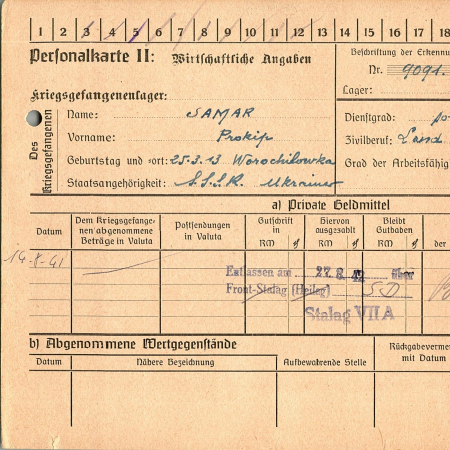 1 2 3 4 5 6 7 8 9 10 11 12 13 14 15 16 17 18
Personalkarte II: Wirtschaftliche Angaben
Beschriftung der Erkennu
Nr. 9091.
Lager:
Kriegsgefangenenlager:
Des Kriegsgefangenen
Name: SAMAR
Vorname: Prokip
Geburtstag und -ort: 25.3.13 Woroschilowka
Staatsangehörigkeit: S.S.S.R. Ukrainer
Dienstgrad:
Zivilberuf: Land
Grad der Arbeitsfähig
a) Private Geldmittel
Datum
Dem Kriegsgefange-
nen abgenommene
Beträge in Valuta
Postsendungen
in Valuta
Gutschrift
in
RM ₰
Hiervon
ausgezahlt
RM ₰
Bleibt
Guthaben
RM ₰
der
14.8.41
Entlassen am 27.8.42 über
Front-Stalag (Heilag) SD
Stalag VII A
b) Abgenommene Wertgegenstände
Datum
Nähere Bezeichnung
Aufbewahrende Stelle
Rückgabeverme
mit Datum